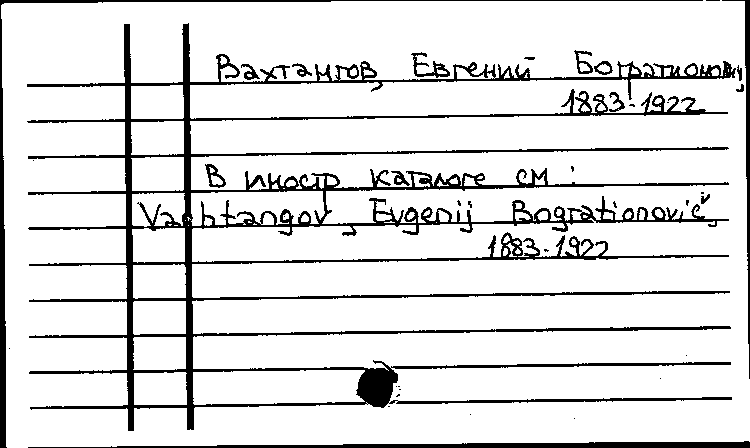 Вахтангов, Евгений Богратионович,
1883-1922
В иностр каталоге см:
Vachtangov, Evgenij Bogrationovič,
1883-1922